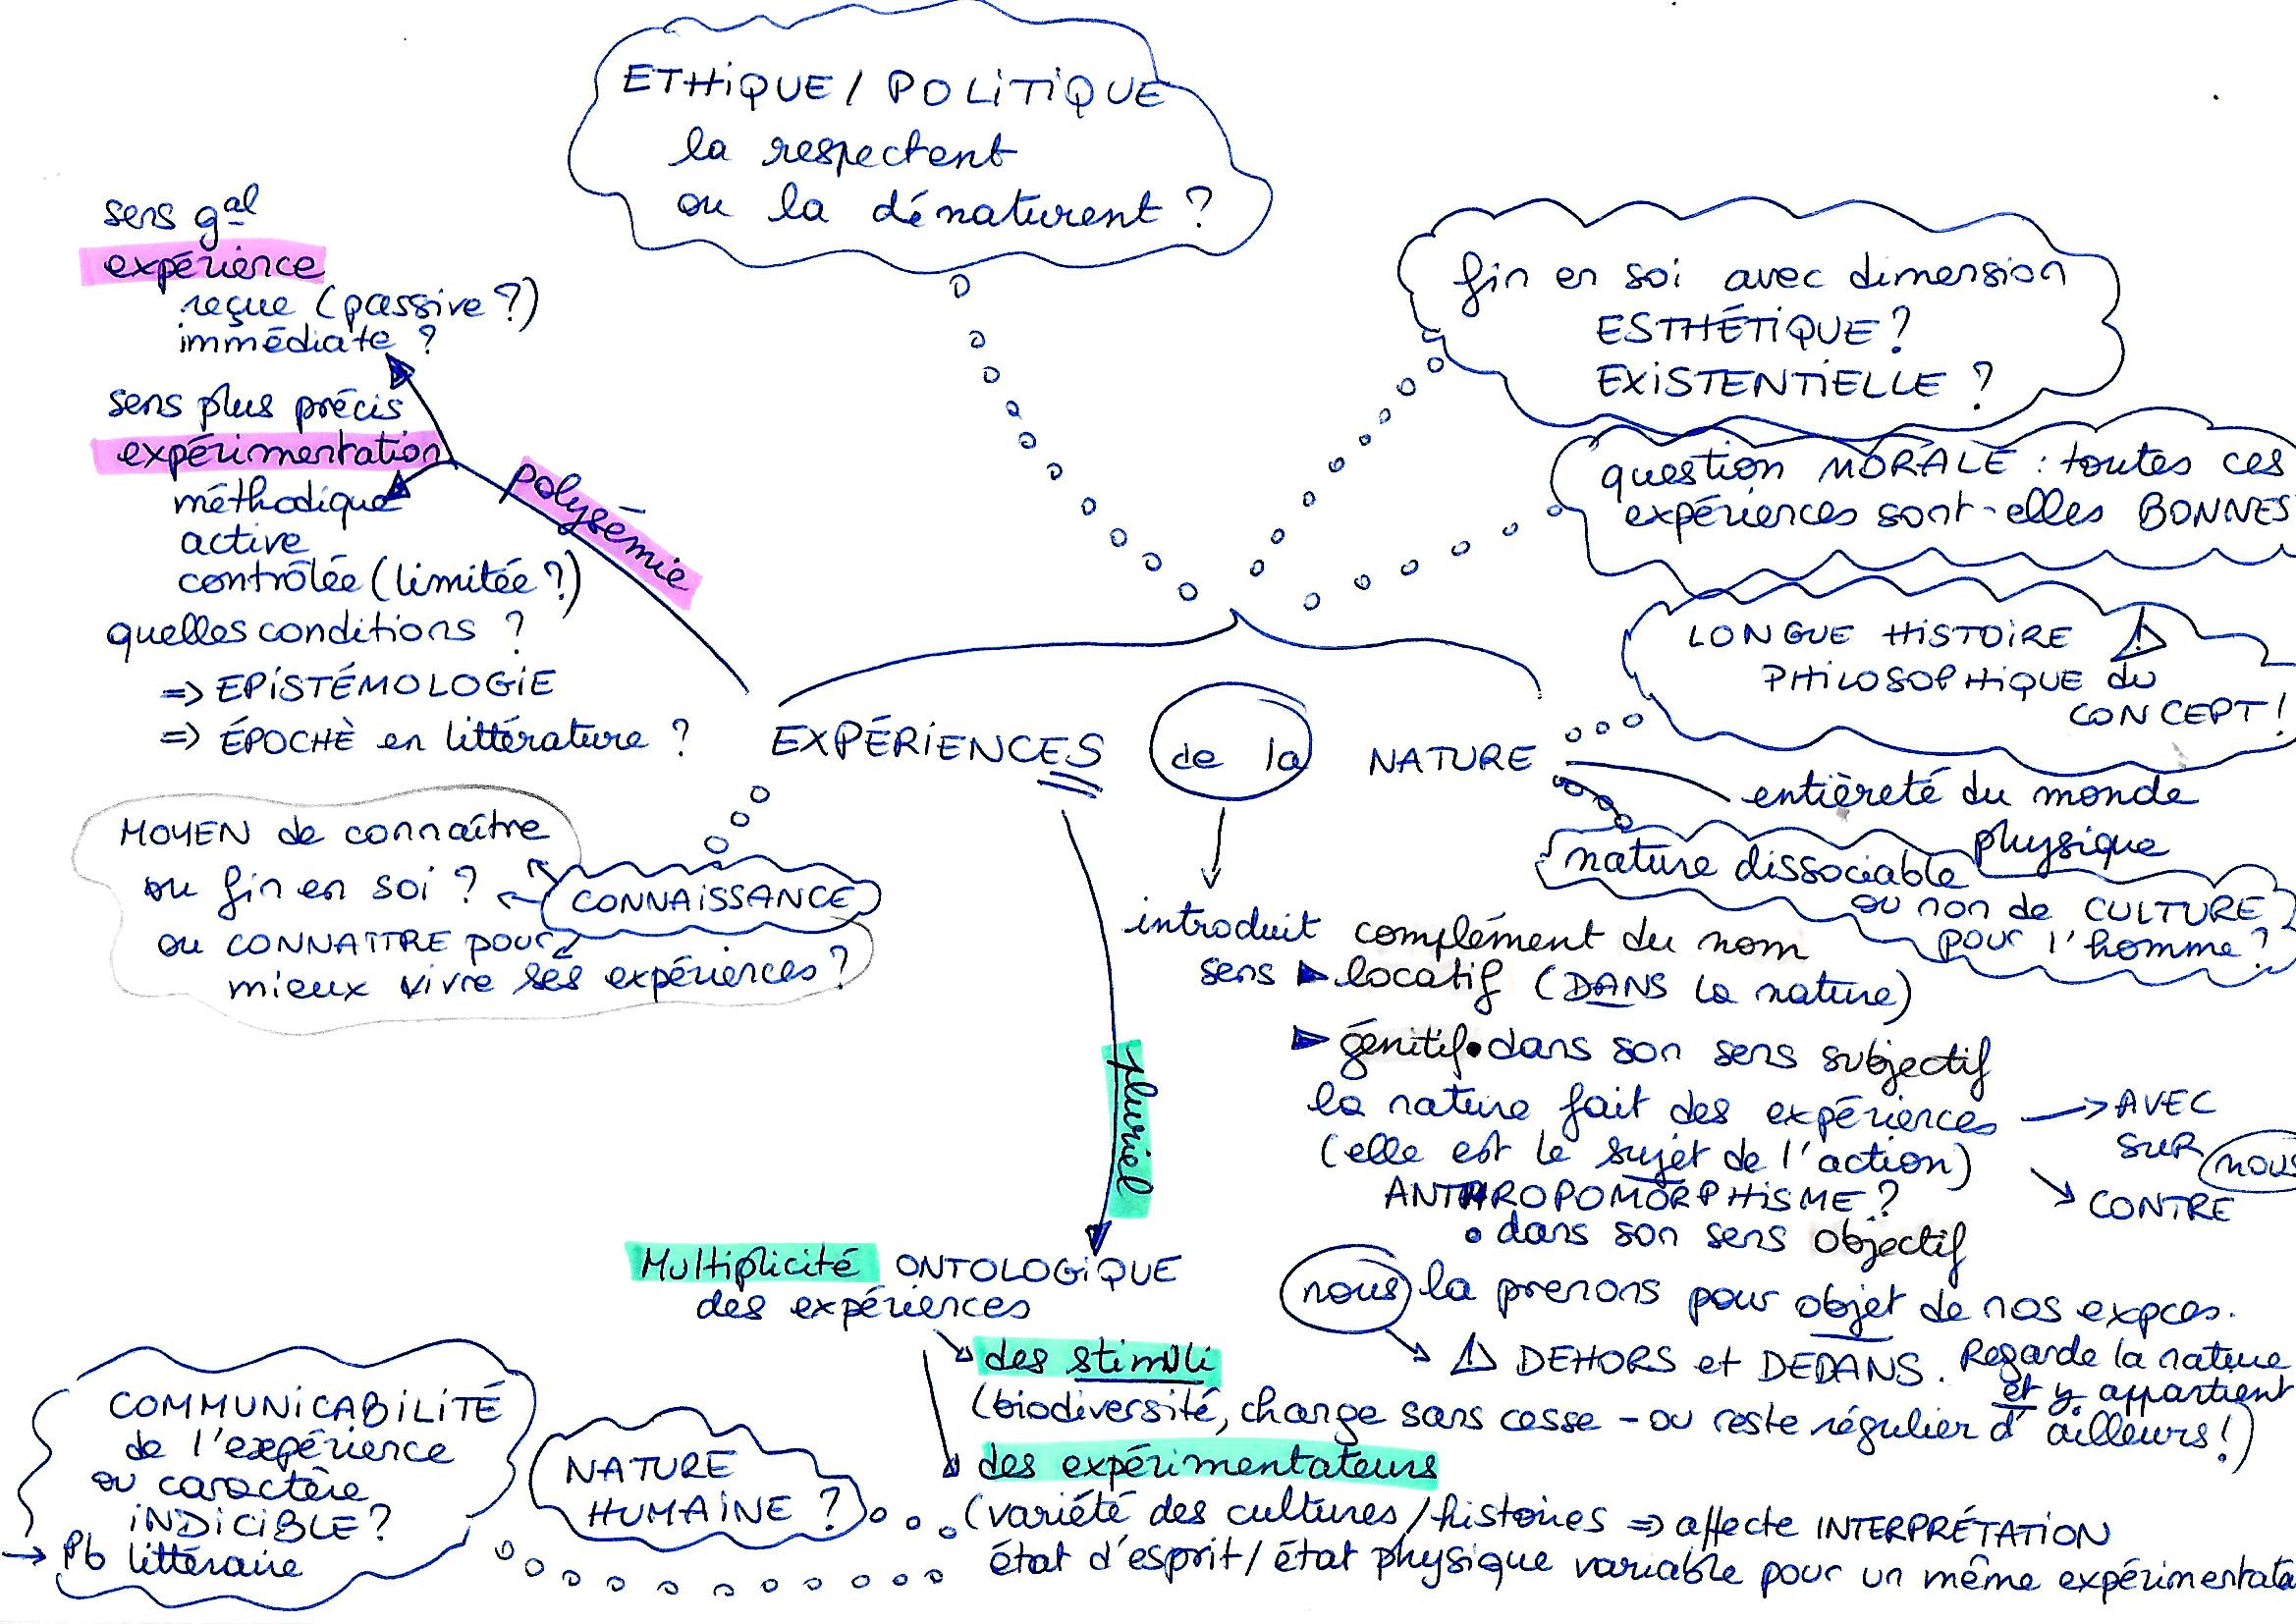 ETHiQUE / POLiTiQUE
la respectent
ou la dénaturent ?
sens gal
expérience
reçue (passive ?)
immédiate ?
sens plus précis
expérimentation
méthodique
active
contrôlée (limitée ?)
quelles conditions ?
=> EPiSTÉMOLOGiE
=> ÉPOCHÈ en littérature ?
polysémie
fin en soi avec dimension
ESTHÉTiQUE ?
EXiSTENTiELLE ?
question MORALE : toutes ces
expériences sont-elles BONNES
LONGUE HiSTOiRE ⚠
PHiLOSOPHiQUE du
CONCEPT !
EXPÉRiENCES de la NATURE
entièreté du monde
physique
nature dissociable
ou non de CULTURE
pour l'homme ?
MOYEN de connaître
ou fin en soi ?
CONNAiSSANCE
ou CONNAITRE pour
mieux vivre ses expériences ?
introduit complément du nom
sens ► locatif (DANS la nature)
► génitif • dans son sens subjectif
la nature fait des expériences → AVEC
SUR
nous
(elle est le sujet de l'action)
CONTRE
ANTHROPOMORPHiSME ?
• dans son sens objectif
nous la prenons pour objet de nos expces.
⚠ DEHORS et DEDANS. Regarde la nature
et y appartient
pluriel
Multiplicité ONTOLOGiQUE
des expériences
des stimuli
(biodiversité, change sans cesse - ou reste régulier d'ailleurs !)
des expérimentateurs
(variété des cultures / histoires => affecte INTERPRÉTATiON
état d'esprit / état physique variable pour un même expérimentate
NATURE
HUMAiNE ?
COMMUNiCABiLiTÉ
de l'expérience
ou caractère
iNDiCiBLE ?
→ Pb littéraire